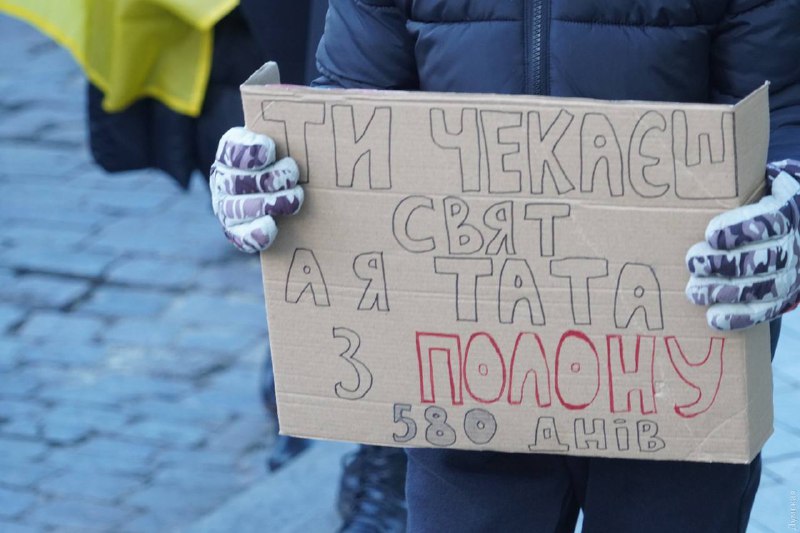 ТИ ЧЕКАЄШ
СВЯТ
А Я ТАТА
З ПОЛОНУ
580 ДНІВ